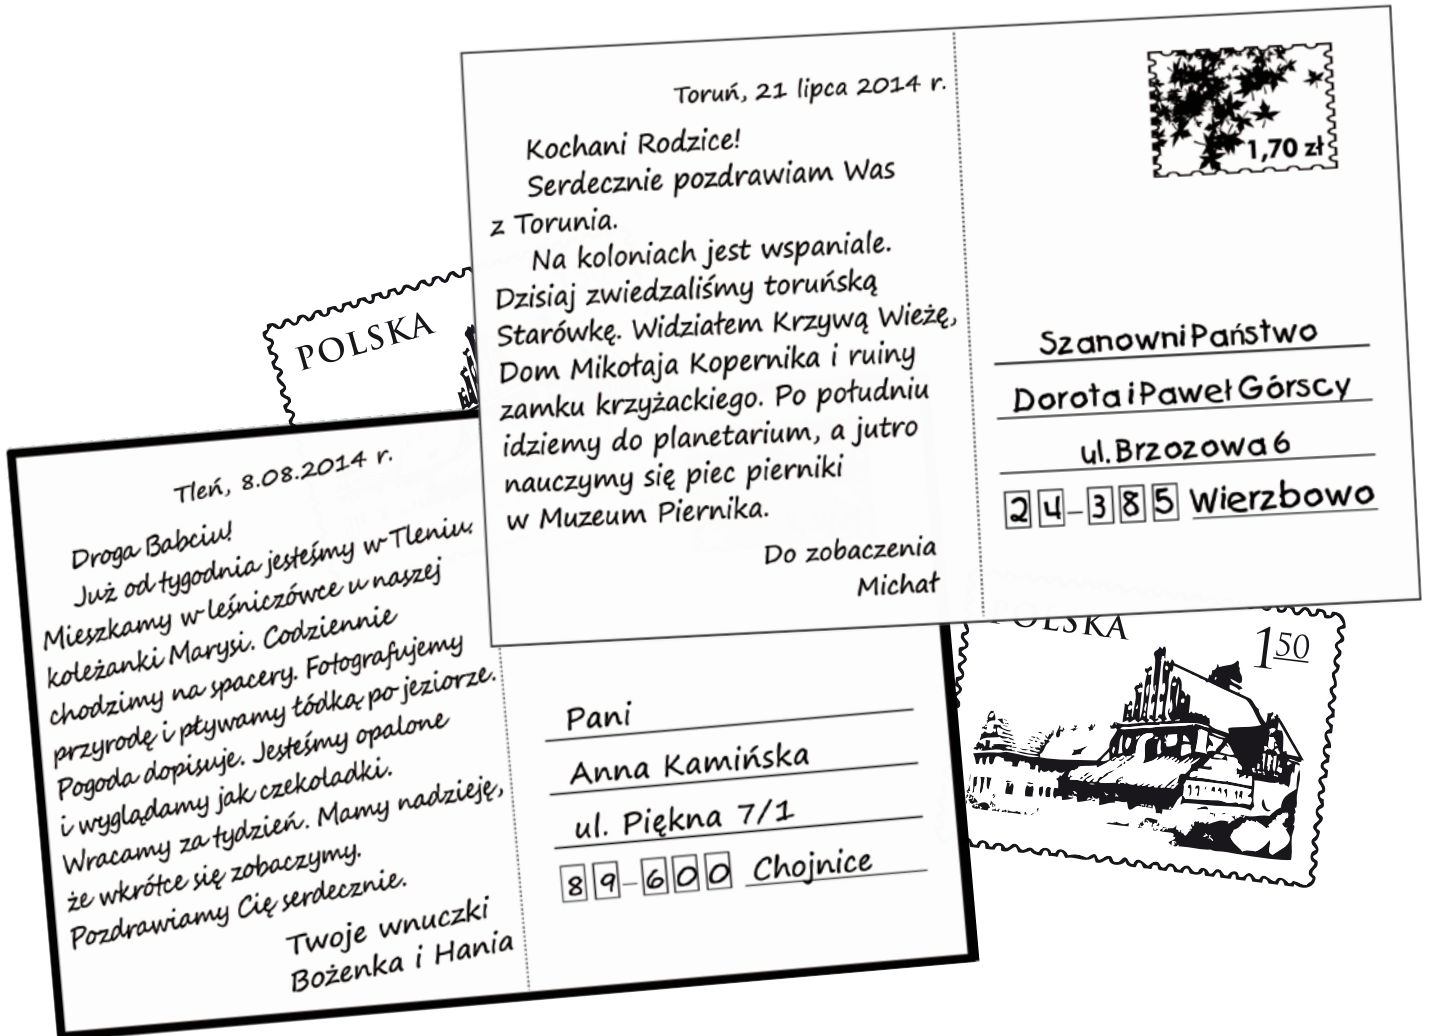 Toruń, 21 lipca 2014 r.
Kochani Rodzice!
Serdecznie pozdrawiam Was
z Torunia.
Na koloniach jest wspaniale.
Dzisiaj zwiedzaliśmy toruńską
Starówkę. Widziałem Krzywą Wieżę,
Dom Mikołaja Kopernika i ruiny
zamku krzyżackiego. Po południu
idziemy do planetarium, a jutro
nauczymy się piec pierniki
w Muzeum Piernika.
Do zobaczenia
Michał
1,70 zł
Szanowni Państwo
Dorota i Paweł Górscy
ul. Brzozowa 6
24-385 Wierzbowo
POLSKA
Tleń, 8.08.2014 r.
Droga Babciu!
Już od tygodnia jesteśmy w Tleniu.
Mieszkamy w leśniczówce u naszej
koleżanki Marysi. Codziennie
chodzimy na spacery. Fotografujemy
przyrodę i pływamy łódką po jeziorze.
Pogoda dopisuje. Jesteśmy opalone
i wyglądamy jak czekoladki.
Wracamy za tydzień. Mamy nadzieję,
że wkrótce się zobaczymy.
Pozdrawiamy Cię serdecznie.
Twoje wnuczki
Bożenka i Hania
Pani
Anna Kamińska
ul. Piękna 7/1
89-600 Chojnice
POLSKA
150